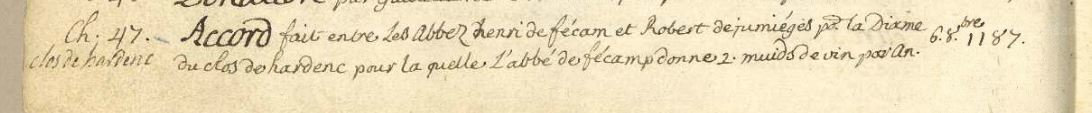 Ch. 47. Accord fait entre Les Abbez henri de fécam et Robert de jumiéges pr. la Dixme 6. 8.bre 1187.
clos de hardenc du clos de hardenc pour la quelle L'abbé de fécamp donne 2. muids de vin par An.